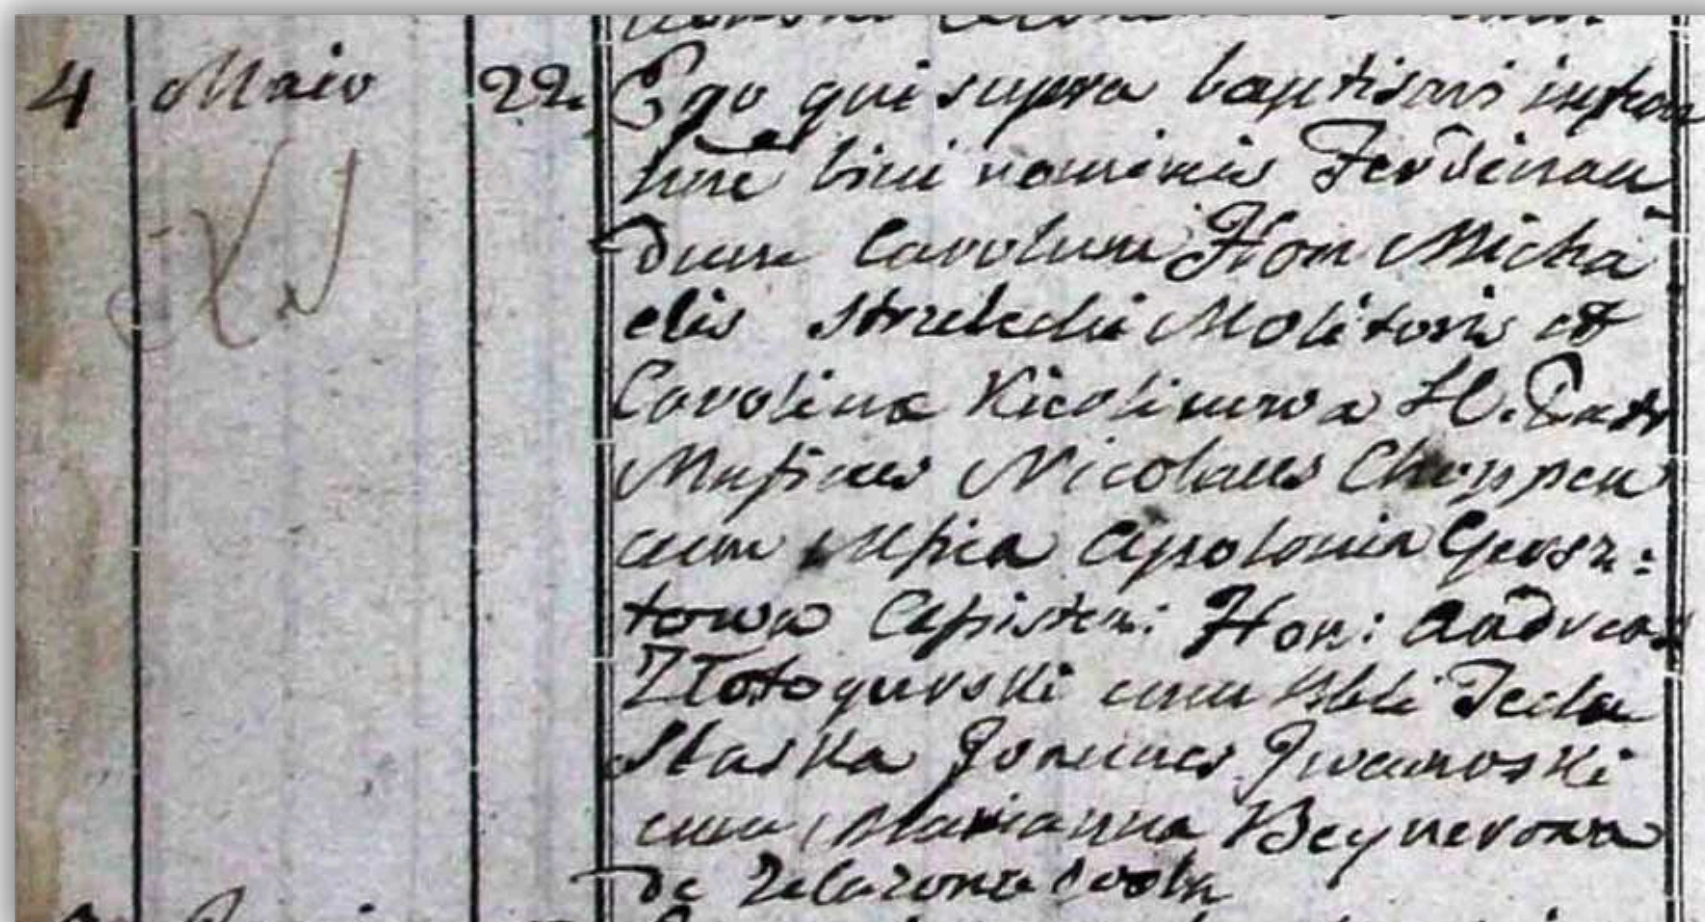 4 Maio 22. Ego qui supra baptisavi infan
tem bini nominis Ferdinan
dum Carolum Hon Micha
elis Molitoris et
Carolina
Nicolaus Choppen
cum Apolonia Gersz:
towa Assisten: Hon: Andreas
Złotogurski cum Tecla
Slaska Joannes Iwanoski
cum Marianna Beynerowa
de Zelazowa Wola